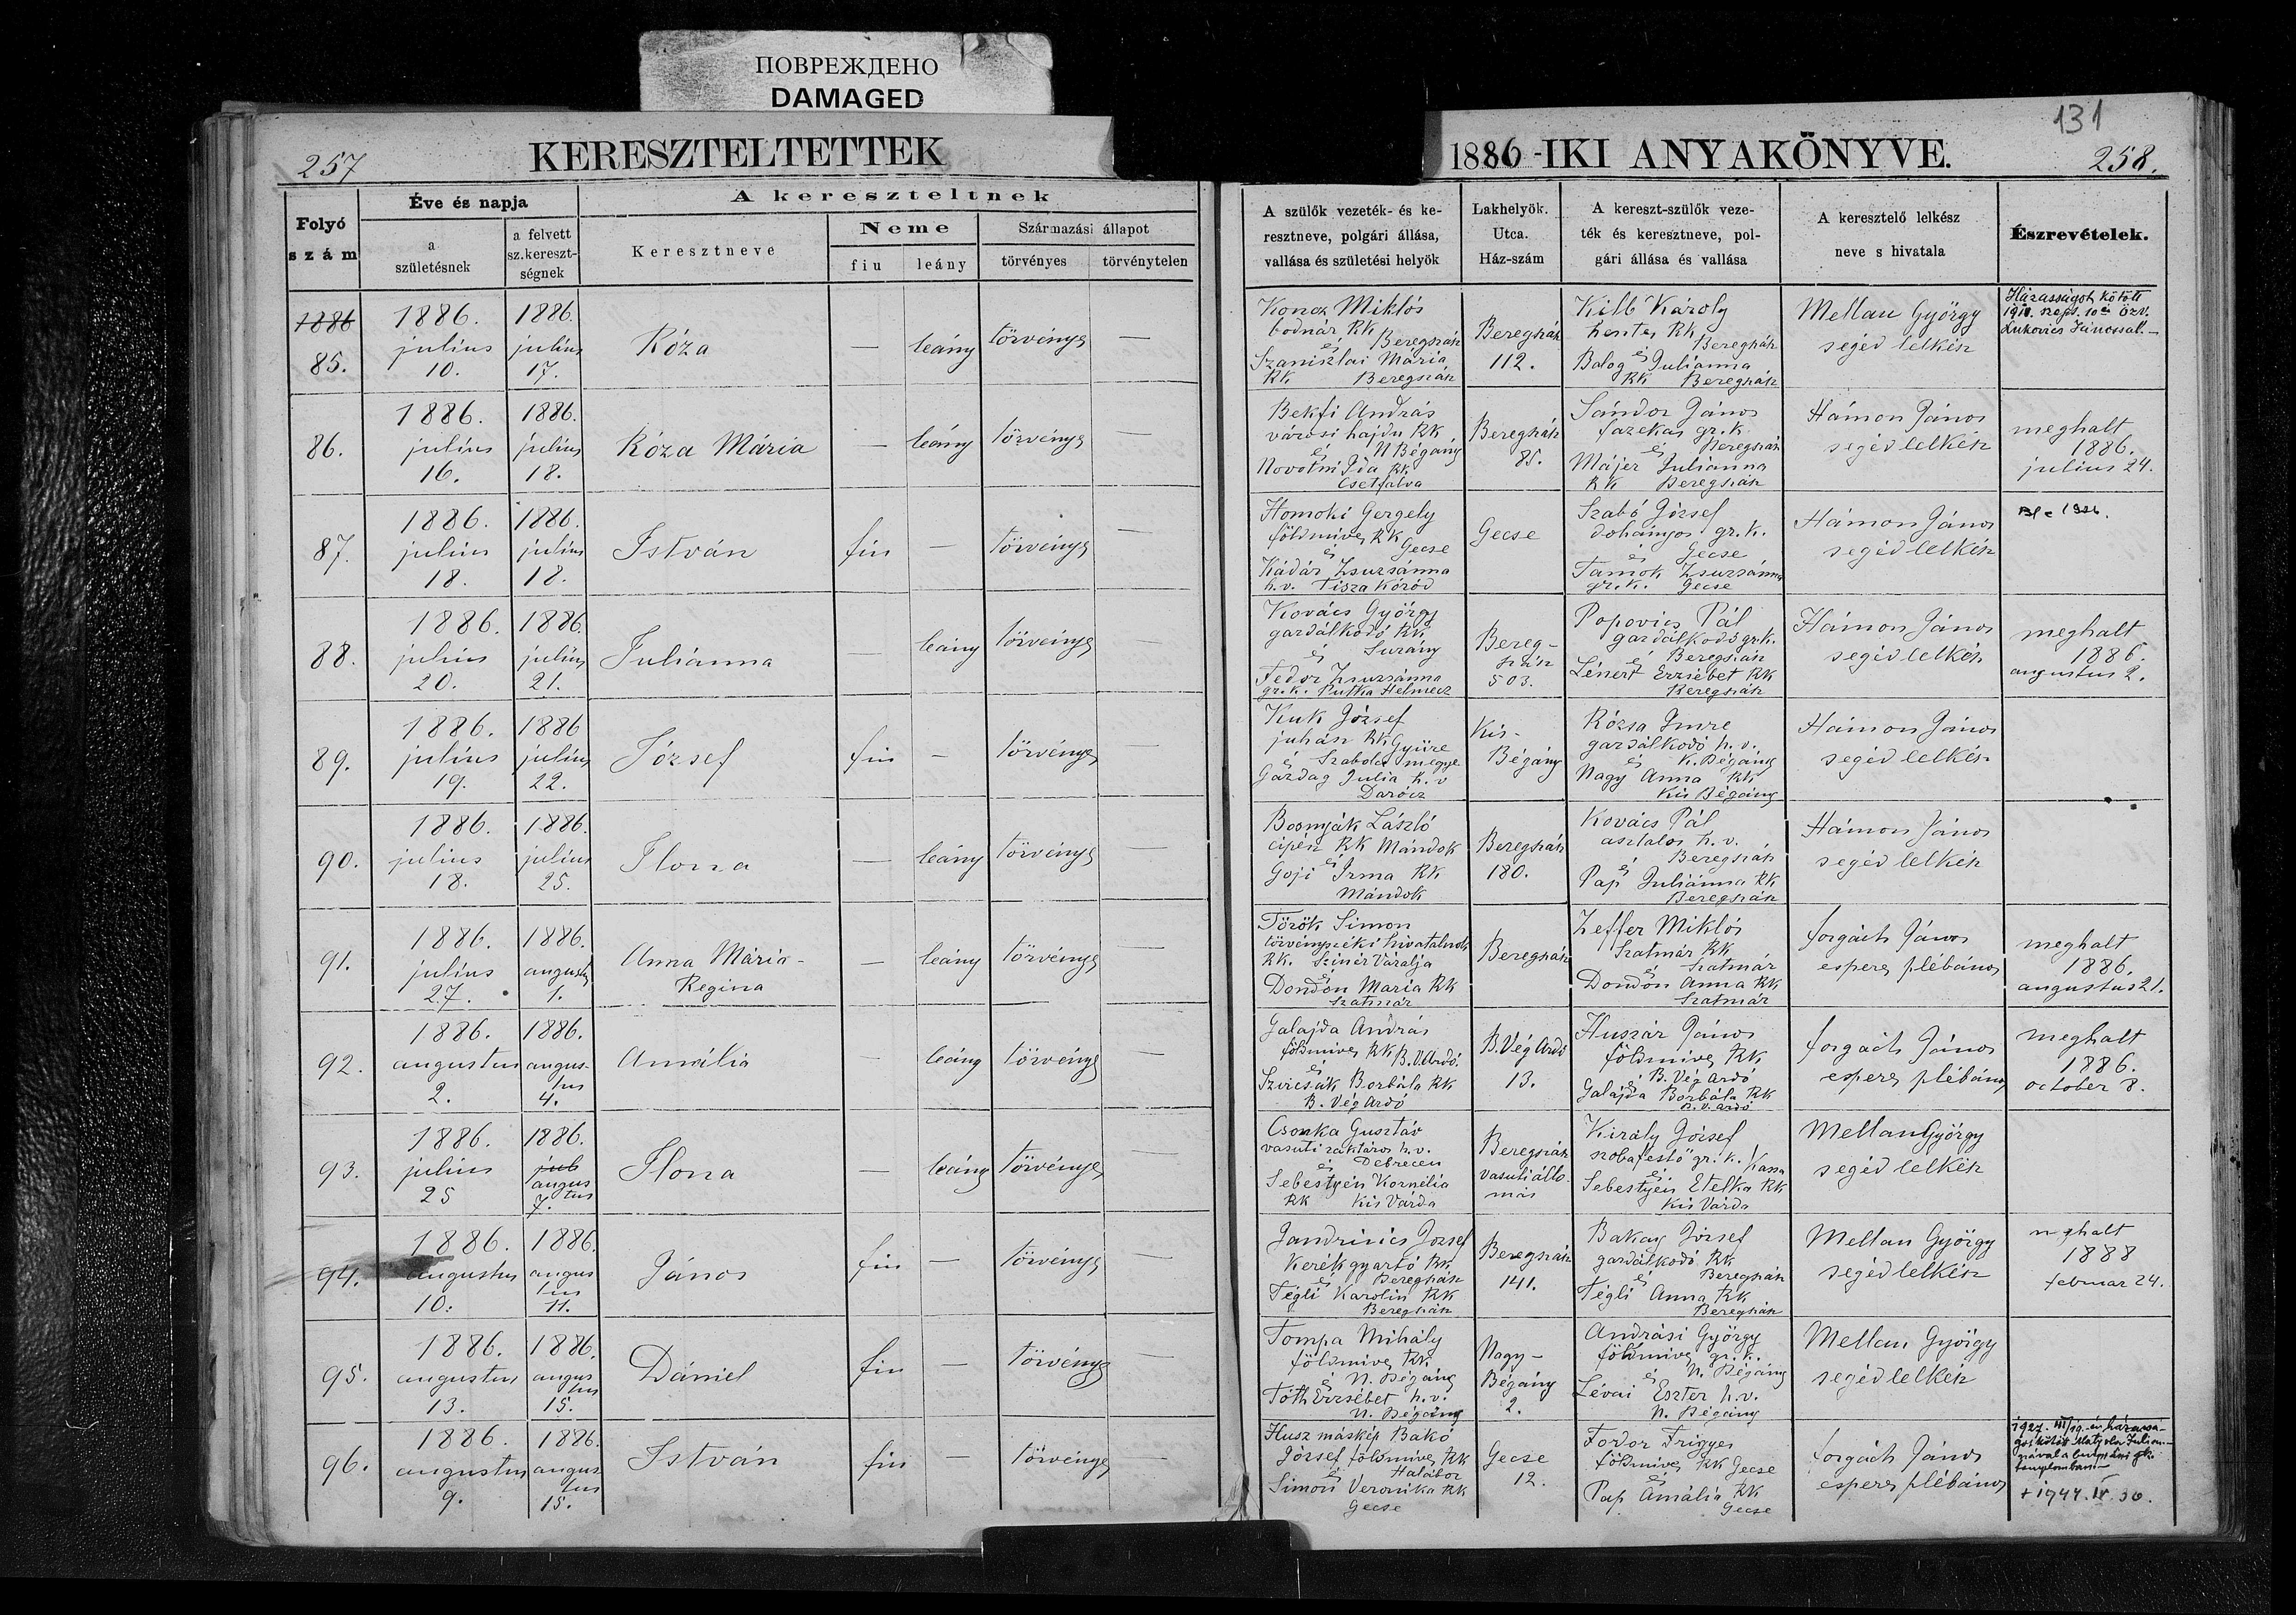 ПОВРЕЖДЕНО
DAMAGED
131
257
KERESZTELTETTEK
1886-IKI ANYAKÖNYVE.
258.
Folyó szám
Éve és napja
a születésnek
a felvett sz.kereszt-ségnek
A kereszteltnek
Keresztneve
Neme
fiu
leány
Származási állapot
törvényes
törvénytelen
A szülők vezeték- és ke-
resztneve, polgári állása,
vallása és születési helyök
Lakhelyök.
Utca.
Ház-szám
A kereszt-szülők veze-
ték és keresztneve, pol-
gári állása és vallása
A keresztelő lelkész
neve s hivatala
Észrevételek.
1886
85.
1886.
julius
10.
1886.
julius
17.
Róza
—
leány
törvényes
—
Koncz Miklós
bodnár RK
és Beregszász
Szaniszlai Mária
RK Beregszász
Beregszász
112.
Kilb Károly
hentes RK
és Beregszász
Balog Juliánna
RK Beregszász
Mellan György
segéd lelkész
Házasságot kötött
1911. szept. 10én Özv.
Lukovics Jánossal.—
86.
1886.
julius
16.
1886.
julius
18.
Róza Mária
—
leány
törvényes
—
Bekfi András
városi hajdu RK
és N Bégány
Novotni Ida RK
Csetfalva
Beregszász
85.
Sándor János
fazekas gr.k.
és Beregszász
Májer Julianna
RK Beregszász
Hámon János
segéd lelkész
meghalt
1886.
julius 24.
87.
1886.
julius
18.
1886.
julius
18.
István
fiu
—
törvényes
—
Homoki Gergely
földmives RK
és Gecse
Kádár Zsuzsánna
h.v. Tisza Kóród
Gecse
Szabó József
dohányos gr.k.
és Gecse
Tamok Zsuzsánna
gr.k. Gecse
Hámon János
segéd lelkész
88.
1886.
julius
20.
1886.
julius
21.
Juliánna
—
leány
törvényes
—
Kovács György
gazdálkodó RK
és Surány
Fedor Zsuzsánna
gr.k. Putka Helmecz
Bereg-
szász
503.
Popovics Pál
gazdálkodó gr.k.
és Beregszász
Lénert Erzsébet RK
Beregszász
Hámon János
segéd lelkész
meghalt
1886.
augustus 2.
89.
1886.
julius
19.
1886
julius
22.
József
fiu
—
törvényes
—
Kuk József
juhász RK Gyüre
és Szabolcs megye
Gazdag Julia h.v
Darócz
Kis-
Bégány
Rózsa Imre
gazdálkodó h.v.
és K. Bégány
Nagy Anna RK
Kis Bégány
Hámon János
segéd lelkész
90.
1886.
julius
18.
1886.
julius
25.
Ilona
—
leány
törvényes
—
Bosnyák László
cipész RK Mándok
és
Goji Irma RK
Mándok
Beregszász
180.
Kovács Pál
asztalos h.v.
és Beregszász
Pap Juliánna RK
Beregszász
Hámon János
segéd lelkész
91.
1886.
julius
27.
1886.
augustus
1.
Anna Mária-
Regina
—
leány
törvényes
—
Török Simon
törvényszéki hivatalnok
RK. Szinér Váralja
és
Dondon Maria RK
Szatmár
Beregszász
Zeffer Miklós
Szatmár RK
és Szatmár
Dondon Anna RK
Szatmár
Forgách János
esperes plébános
meghalt
1886.
augustus 21.
92.
1886.
augustus
2.
1886.
augus-
tus
4.
Amália
—
leány
törvényes
—
Galajda András
földmives RK B.V.Ardó.
és
Szvicsák Borbála RK
B. Vég Ardó
B. Vég Ardó
13.
Huszár János
földmives RK
és B. Vég Ardó
Galajda Borbála RK
B. V. Ardó
Forgách János
esperes plébános
meghalt
1886.
october 8.
93.
1886.
julius
25
1886.
jul
augus
tus
7.
Ilona
—
leány
törvényes
—
Csonka Gusztáv
vasuti raktáros h.v.
és Debrecen
Sebestyén Kornélia
RK Kis Várda
Beregszász
vasuti állo-
más
Király József
szobafestő gr.k. Kassa
és
Sebestyén Etelka RK
Kis Várda
Mellan György
segéd lelkész
94.
1886.
augustus
10.
1886.
augus
tus
11.
János
fiu
—
törvényes
—
Jandrisics József
kerékgyartó RK
és Beregszász
Tégli Karolin RK
Beregszász
Beregszász
141.
Bakay József
gazdálkodó RK
és Beregszász
Tégli Anna RK
Beregszász
Mellan György
segéd lelkész
meghalt
1888
februar 24.
95.
1886.
augustus
13.
1886.
augus
tus
15.
Dániel
fiu
—
törvényes
—
Tompa Mihály
földmives RK
és N. Bégány
Tóth Erzsébet h.v.
N. Bégány
Nagy-
Bégány
2.
Andrási György
földmives gr.k.
és N. Bégány
Lévai Eszter h.v.
N. Bégány
Mellan György
segéd lelkész
96.
1886.
augustus
9.
1886.
augus
tus
15.
István
fiu
—
törvényes
—
Husz máskép Bakó
József földmives RK
és Halábor
Simon Veronika RK
Gecse
Gecse
12.
Fodor Frigyes
földmives RK Gecse
és
Pap Amália RK
Gecse
Forgách János
esperes plébános
templomban—
+ 1944. IV. 30.